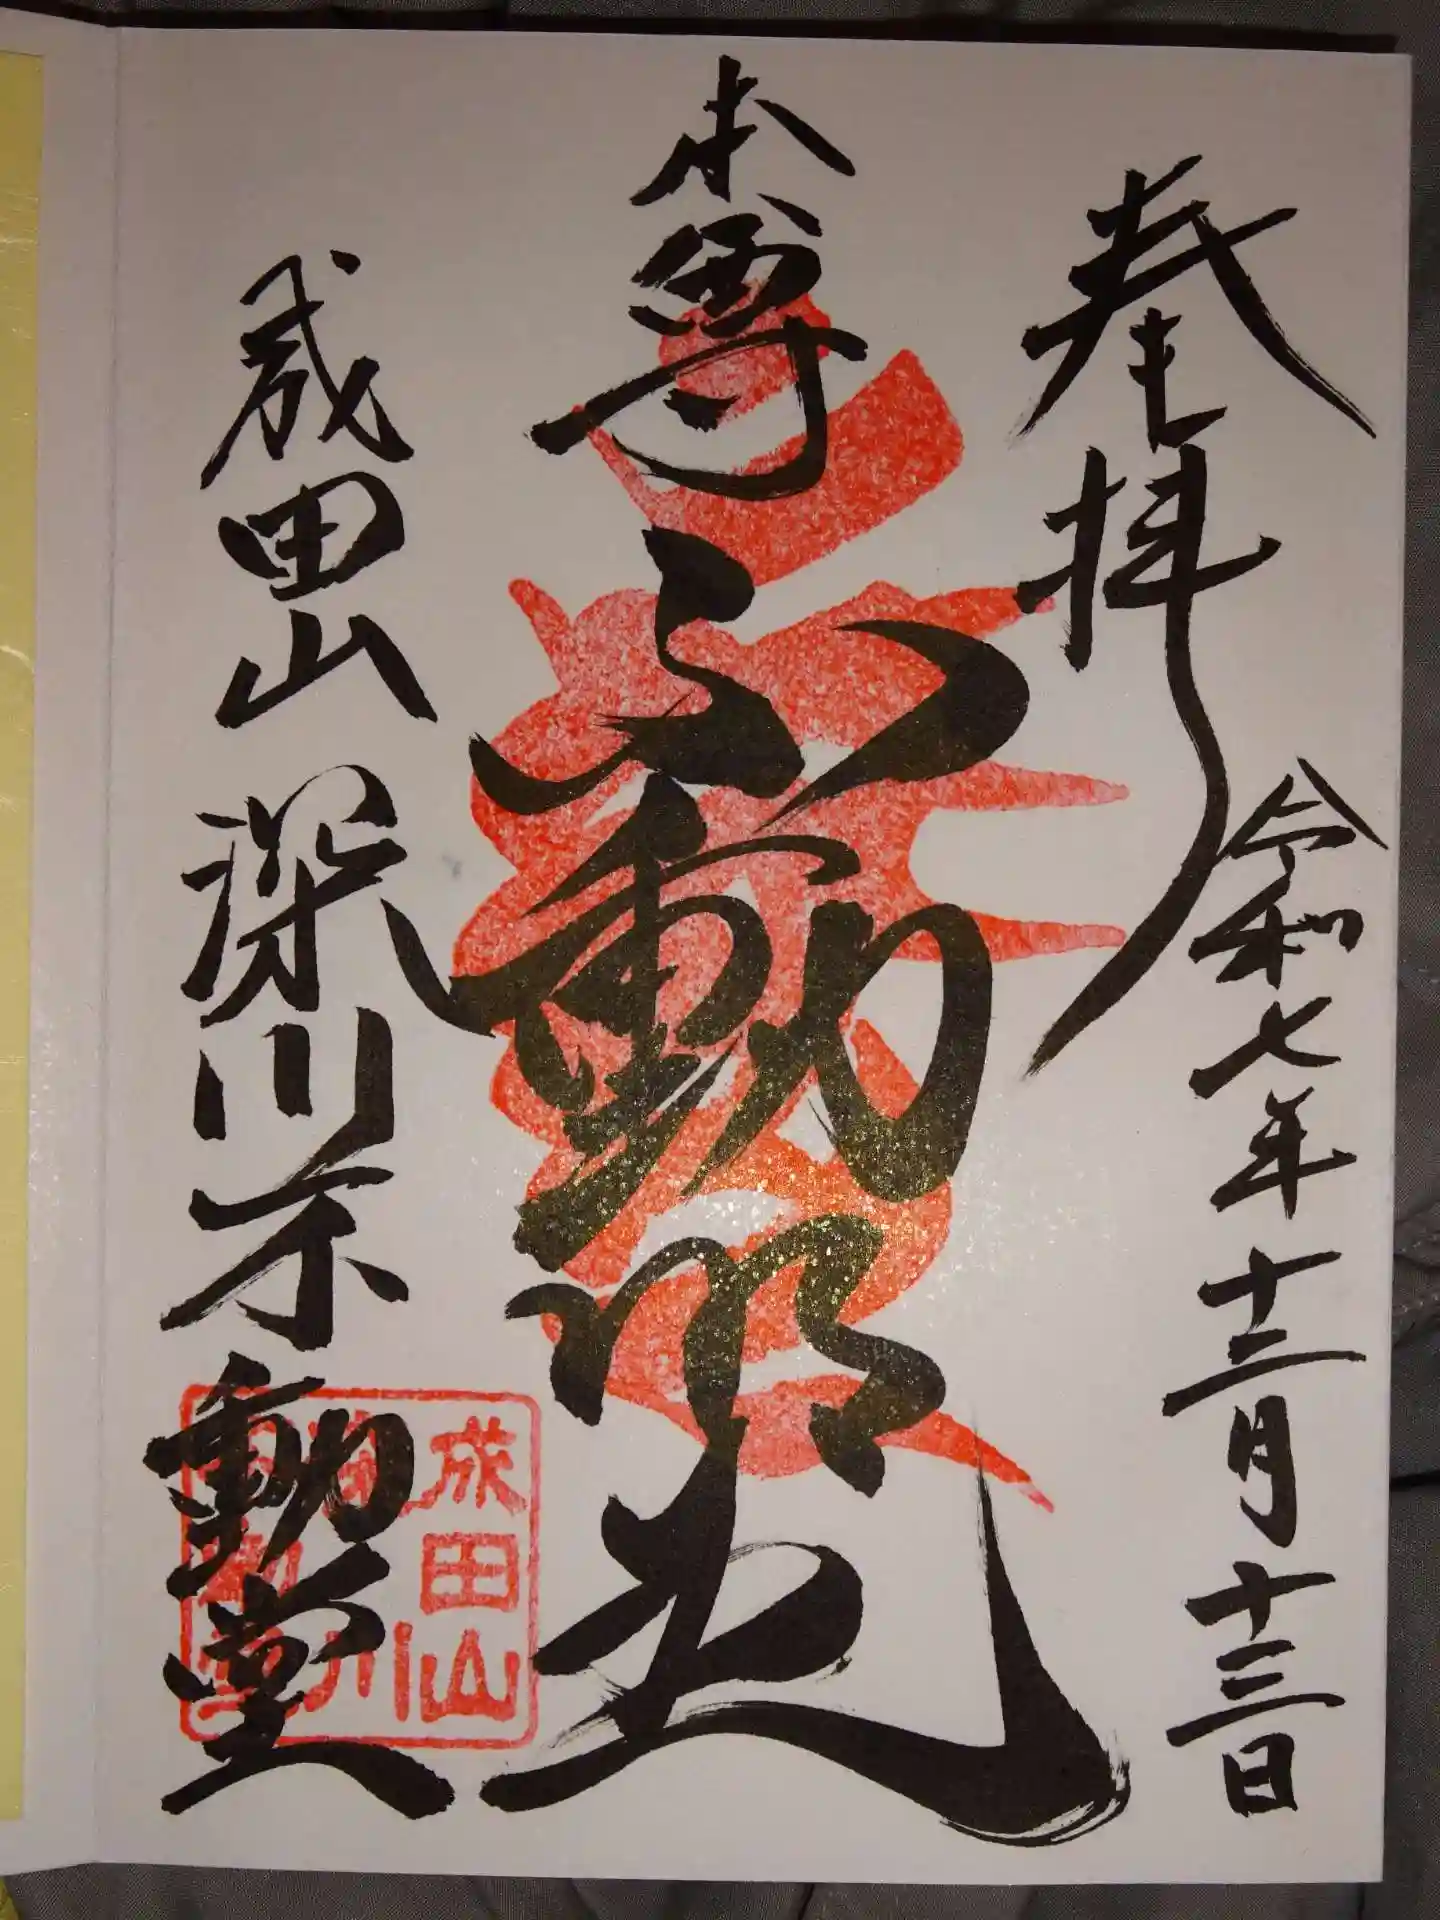 奉拝
令和七年十二月十三日
本尊不動明王
成田山深川不動堂
成田山